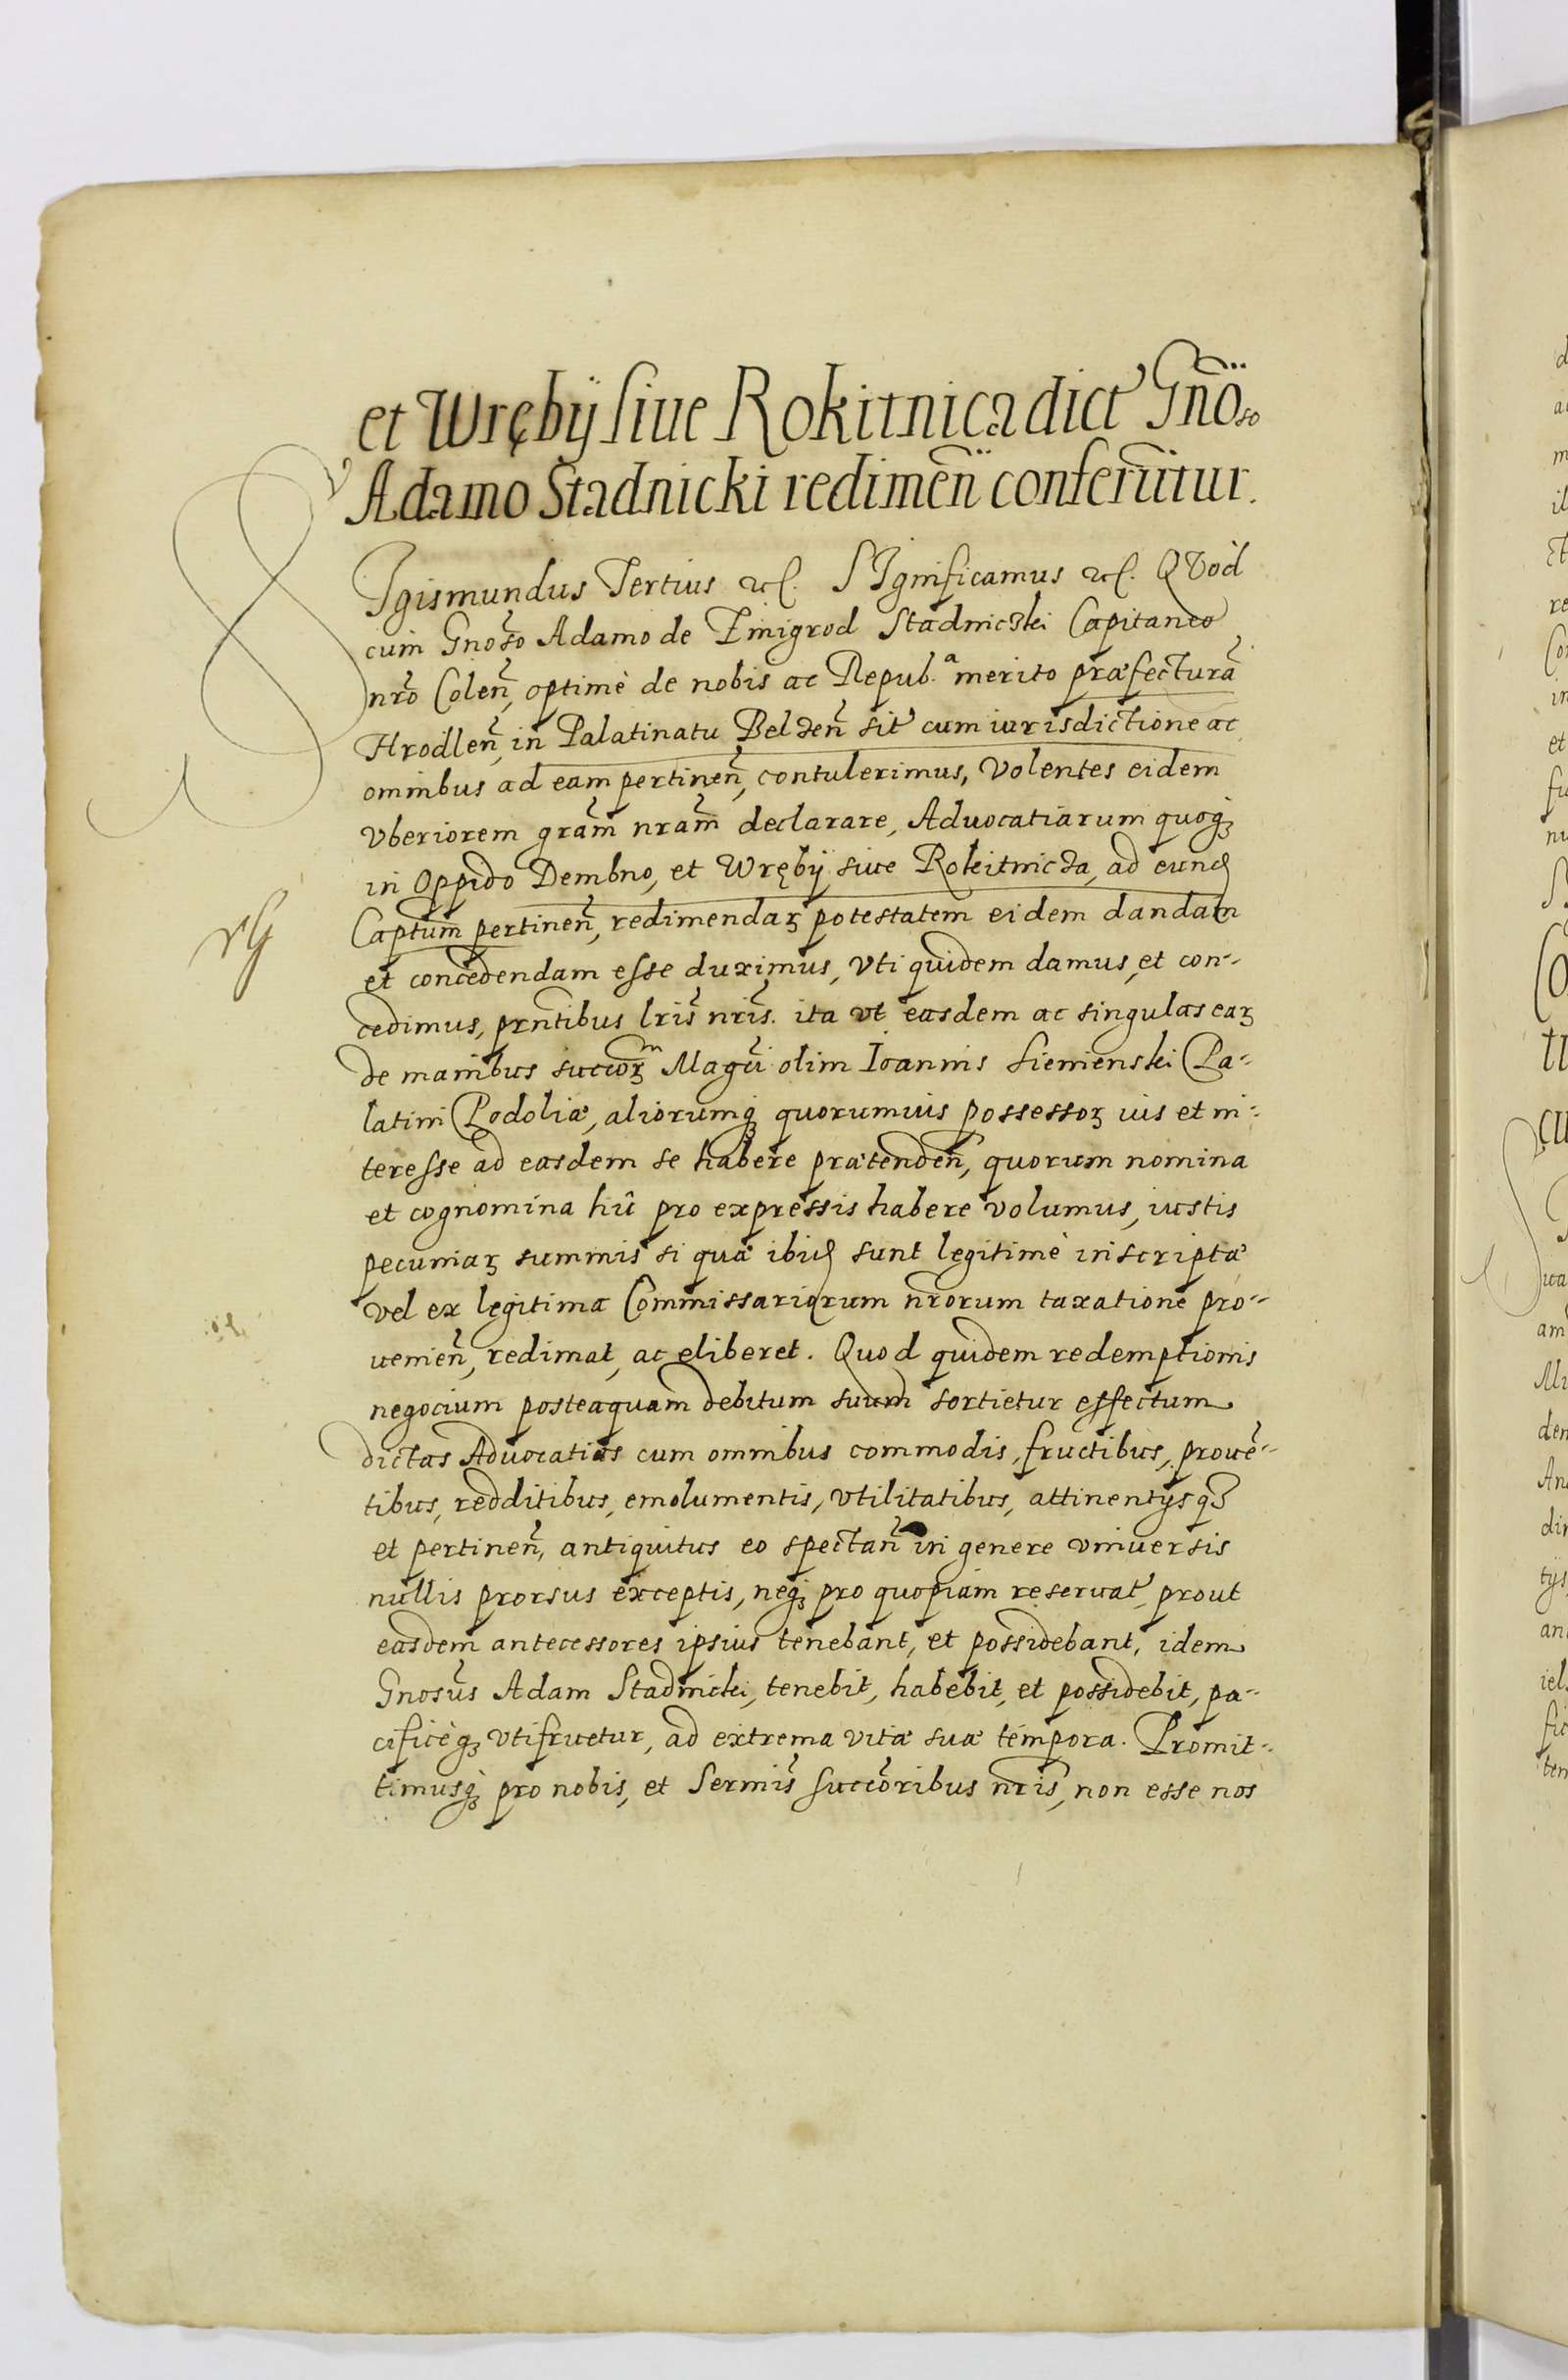 et Wręby siue Rokitnica dict Gnõso
Adamo Stadnicki redimen̄ conferūtur.
SIgismundus Tertius etc. SIgnificamus etc. QVod
cum Gnoso Adamo de Zmigrod Stadniczki Capitaneo
nr̃o Colen̄, optimè de nobis ac Repub.ᵃ merito præfecturā
Hrodlen̄, in Palatinatu Belzen̄ sit cum iurisdictione ac
omnibus ad eam pertinen̄, contulerimus, Volentes eidem
Vberiorem gram̃ nram̃ declarare, Aduocatiarum quoqꝫ
in Oppido Dembno, et Wręby siue Rokitnicza, ad eund
Captum̃ pertinen̄, redimendaꝝ potestatem eidem dandam
et concedendam esse duximus, Vti quidem damus, et con-
cedimus, prñtibus lris̃ nris̃. ita vt easdem ac singulas eaꝝ
de manibus succorꝝ Magci olim Ioannis Sienienski Pa-
latini Podoliæ, aliorumqꝫ quorumuis possessoꝝ ius et in-
teresse ad easdem se habere prætenden̄, quorum nomina
et cognomina hic pro expressis habere volumus, iustis
pecuniaꝝ summis si quæ ibid sunt legitimè inscriptæ
vel ex legitima Commissariorum nr̃orum taxatione pro-
uenien̄, redimat, ac eliberet. Quod quidem redemptionis
negocium posteaquam debitum suum sortietur effectum
dictas Aduocatias cum omnibus commodis, fructibus, prouē-
tibus, redditibus, emolumentis, vtilitatibus, attinentijsqꝫ
et pertinen̄, antiquitus eo spectan̄ in genere vniuersis
nullis prorsus exceptis, neqꝫ pro quopiam reseruat, prout
easdem antecessores ipsius tenebant, et possidebant, idem
Gnosus̃ Adam Stadnicki, tenebit, habebit, et possidebit, pa-
cificèqꝫ vtifruetur, ad extrema vitæ suæ tempora. Promit-
timusqꝫ pro nobis, et Sermis̃ succoribus nr̃is, non esse nos